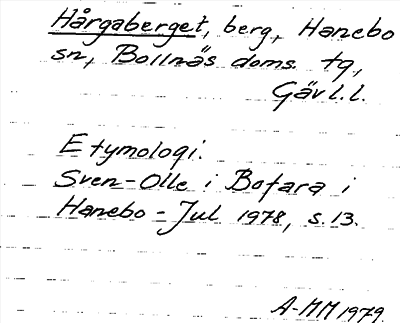 Hårgaberget, berg, Hanebo
sn, Bollnäs doms. tg,
Gävl.l.
Etymologi.
Sven-Olle i Bofara i
Hanebo-Jul 1978, s.13.
A-MM 1979.